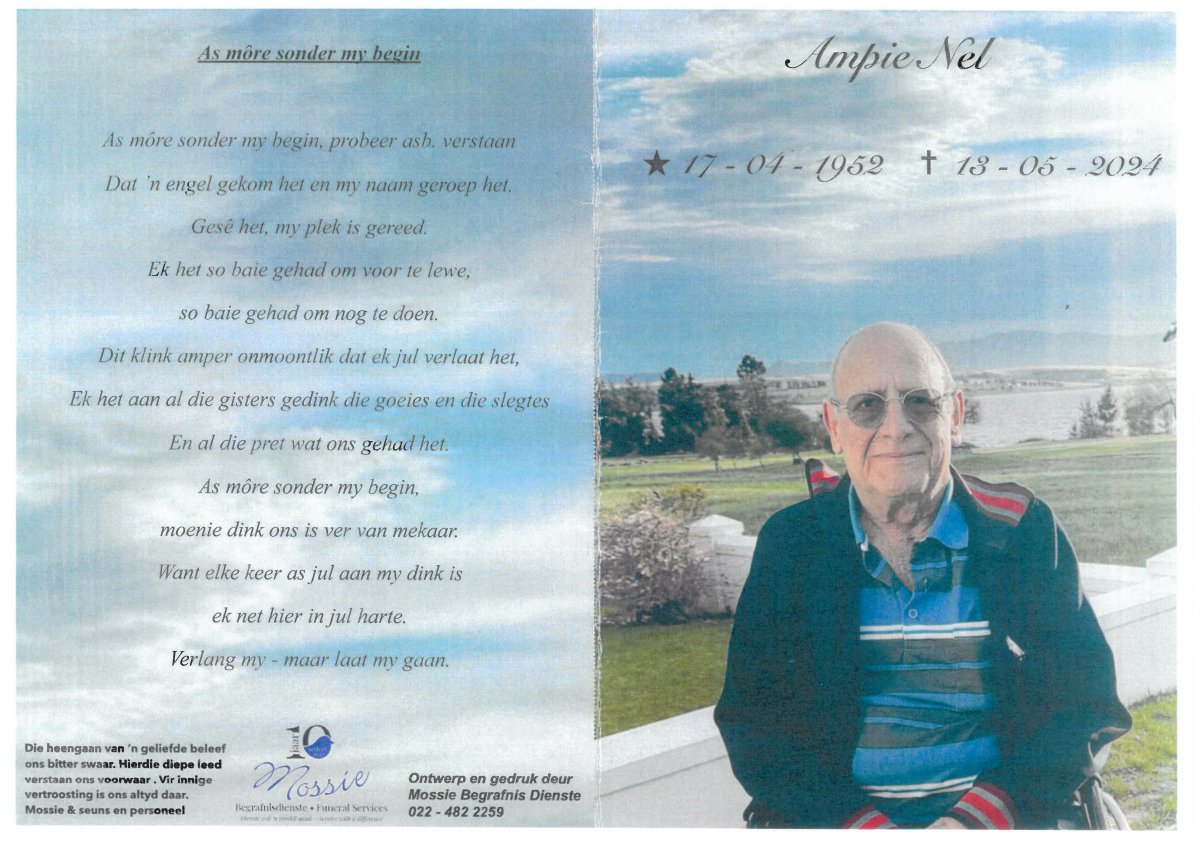 As môre sonder my begin
As môre sonder my begin, probeer asb. verstaan
Dat 'n engel gekom het en my naam geroep het.
Gesê het, my plek is gereed.
Ek het so baie gehad om voor te lewe,
so baie gehad om nog te doen.
Dit klink amper onmoontlik dat ek jul verlaat het,
Ek het aan al die gisters gedink die goeies en die slegtes
En al die pret wat ons gehad het.
As môre sonder my begin,
moenie dink ons is ver van mekaar.
Want elke keer as jul aan my dink is
ek net hier in jul harte.
Verlang my - maar laat my gaan.
Die heengaan van 'n geliefde beleef
ons bitter swaar. Hierdie diepe leed
verstaan ons voorwaar . Vir innige
vertroosting is ons altyd daar.
Mossie & seuns en personeel
10
jaar
Mossie
Begrafnisdienste • Funeral Services
Ontwerp en gedruk deur
Mossie Begrafnis Dienste
022 - 482 2259
Ampie Nel
★ 17 - 04 - 1952 ✝ 13 - 05 - 2024